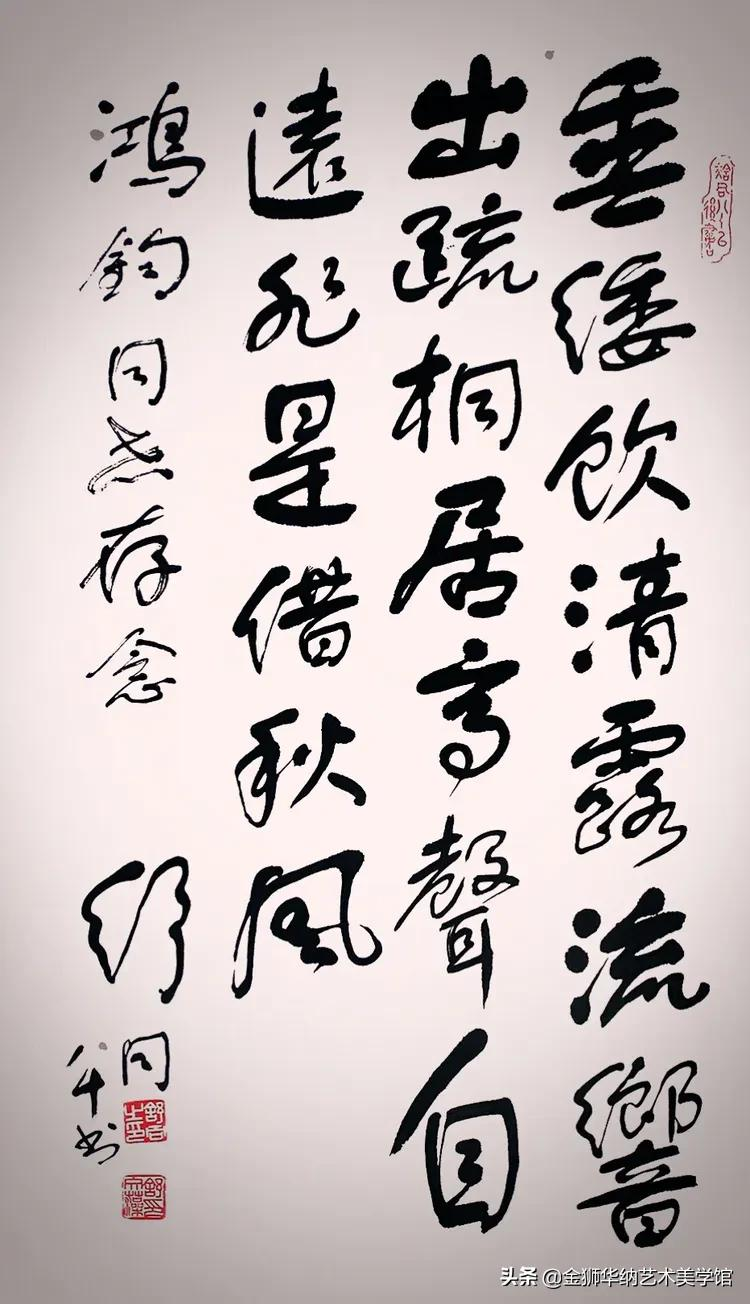 垂緌飲清露流響
出疏桐居高聲自
遠非是借秋風
鴻鈞同志存念
舒同
舒同之印
头条 @金狮华纳艺术美学馆